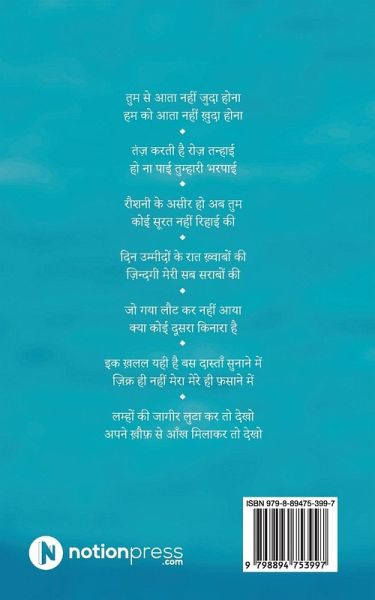 तुम से आता नहीं जुदा होना
हम को आता नहीं ख़ुदा होना
तंज़ करती है रोज़ तन्हाई
हो ना पाई तुम्हारी भरपाई
रौशनी के असीर हो अब तुम
कोई सूरत नहीं रिहाई की
दिन उम्मीदों के रात ख़्वाबों की
ज़िन्दगी मेरी सब सराबों की
जो गया लौट कर नहीं आया
क्या कोई दूसरा किनारा है
इक ख़लल यही है बस दास्ताँ सुनाने में
ज़िक्र ही नहीं मेरा मेरे ही फ़साने में
लम्हों की जागीर लुटा कर तो देखो
अपने ख़ौफ़ से आँख मिलाकर तो देखो
ISBN 979-8-89475-399-7
9 798894 753997
N notionpress
.com